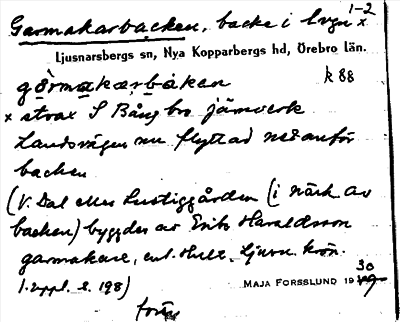 Garmakarbacken, backe i Lvgn x 1-2
Ljusnarsbergs sn, Nya Kopparbergs hd, Örebro län.
k 88
x strax S Bångbro järnverk
Landsvägen nu flyttad nedanför
backen
(V. Dal eller Lustiggården (i närh av
backen) byggdes av Erik Haraldsson
garmakare, enl. Hult. Ljusn. krön.
1. uppl. s. 198)
MAJA FORSSLUND 1930